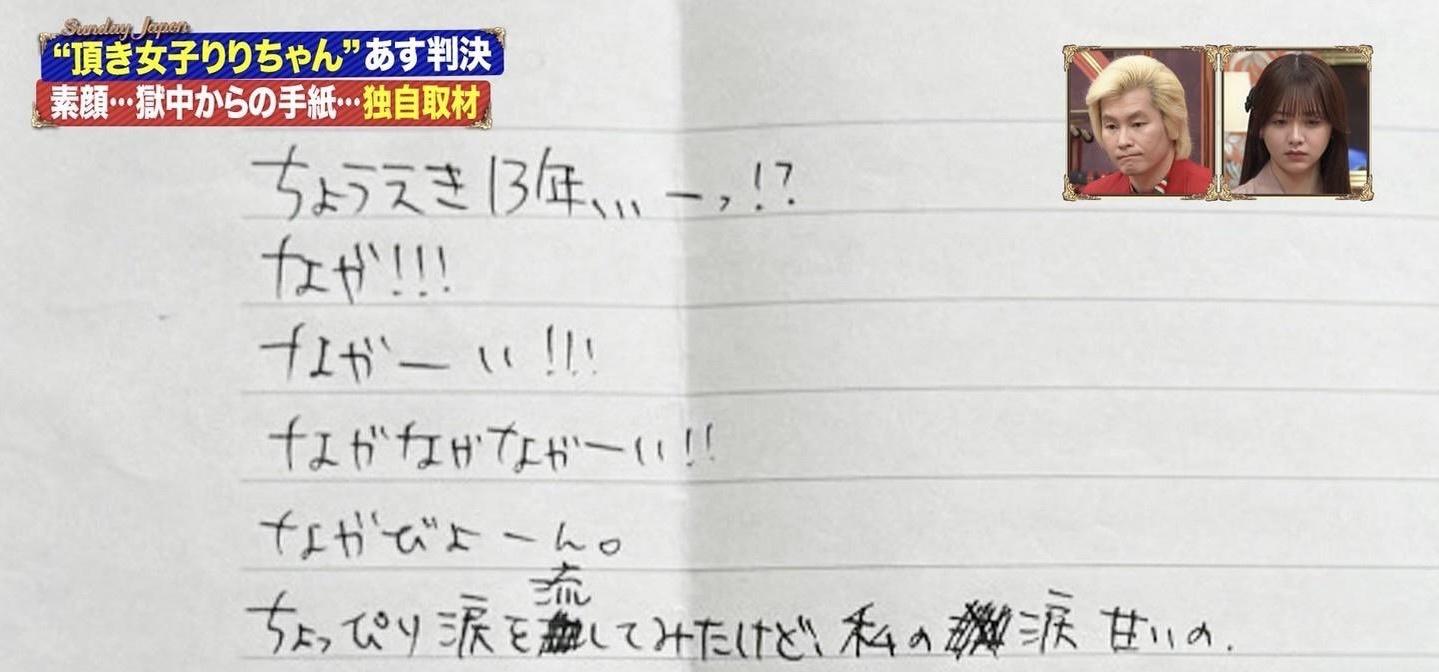 Sunday Japon
“頂き女子りりちゃん”あす判決
素顔…獄中からの手紙…独自取材
ちょうえき13年、、、ーっ!?
なが!!!
ながーい!!!
ながながながーい!!
ながびよーん。
ちょっぴり涙を流してみたけど、私の涙甘いの.